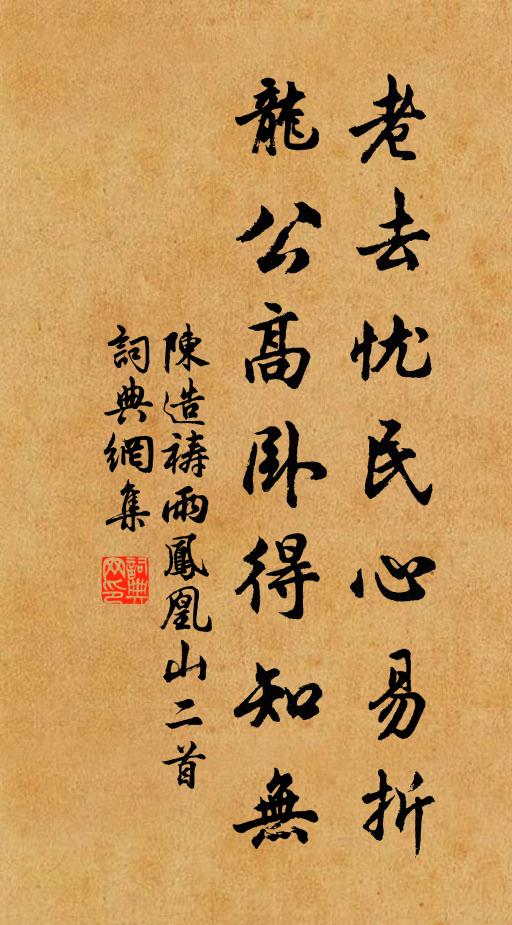 老去忧民心易折
龍公高卧得知無
陳造禱雨鳳凰山二首
詞典網集
詞典网印